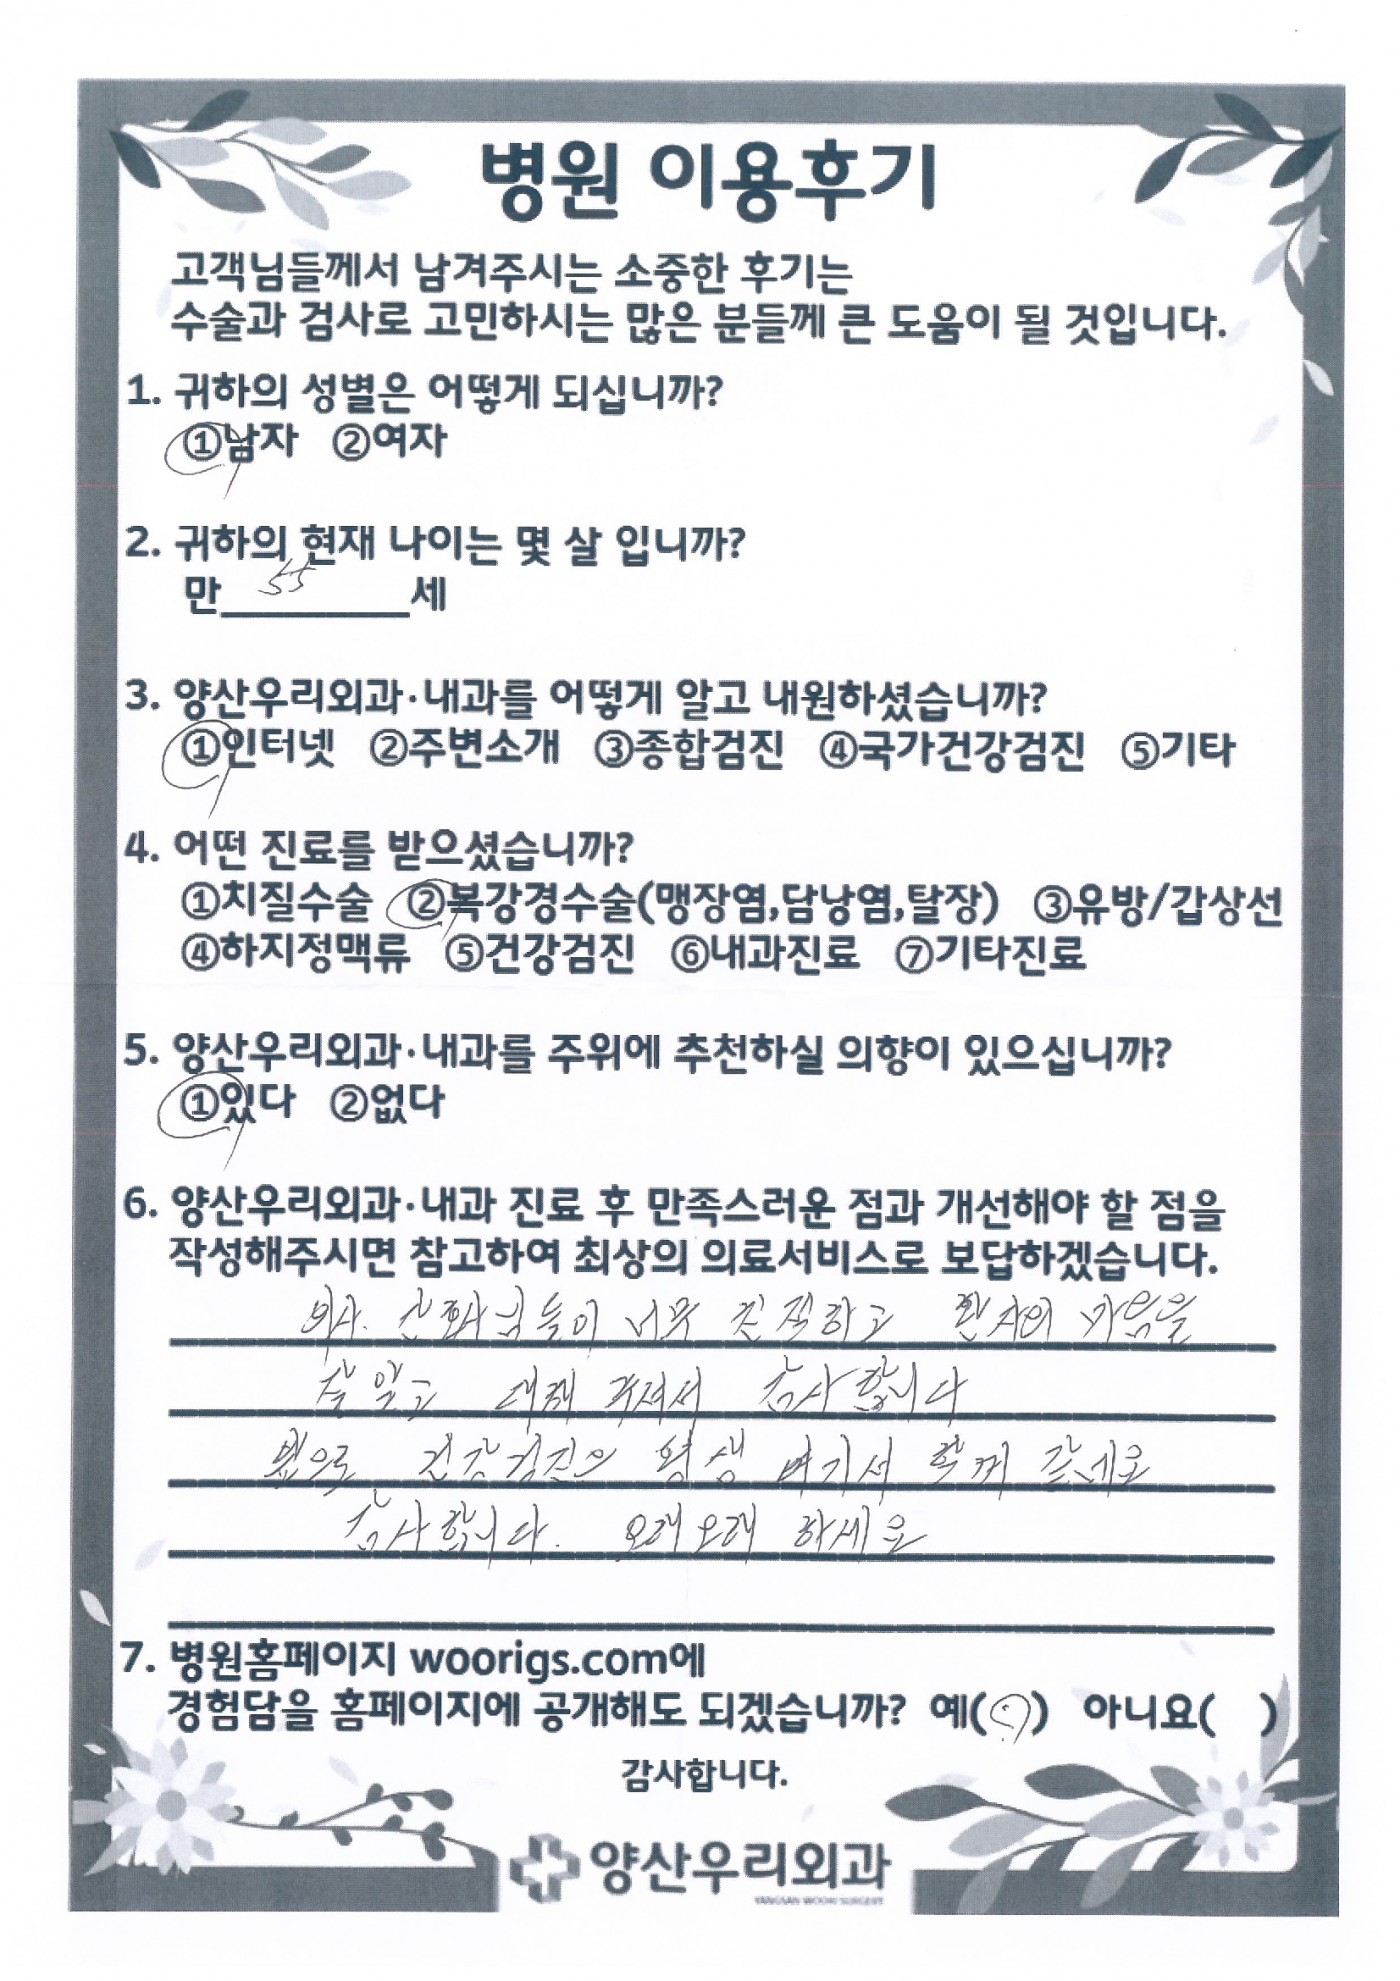 병원 이용후기
고객님들께서 남겨주시는 소중한 후기는
수술과 검사로 고민하시는 많은 분들께 큰 도움이 될 것입니다.
1. 귀하의 성별은 어떻게 되십니까?
①남자 ②여자
2. 귀하의 현재 나이는 몇 살 입니까?
만 55 세
3. 양산우리외과·내과를 어떻게 알고 내원하셨습니까?
①인터넷 ②주변소개 ③종합검진 ④국가건강검진 ⑤기타
4. 어떤 진료를 받으셨습니까?
①치질수술 ②복강경수술(맹장염,담낭염,탈장) ③유방/갑상선
④하지정맥류 ⑤건강검진 ⑥내과진료 ⑦기타진료
5. 양산우리외과·내과를 주위에 추천하실 의향이 있으십니까?
①있다 ②없다
6. 양산우리외과·내과 진료 후 만족스러운 점과 개선해야 할 점을
작성해주시면 참고하여 최상의 의료서비스로 보답하겠습니다.
의사. 간호사님들이 너무 친절하고 환자의 마음을
잘 알고 대해 주셔서 감사합니다
앞으로 건강검진은 평생 여기서 할께
감사합니다. 오래오래 하세요
7. 병원홈페이지 woorigs.com에
경험담을 홈페이지에 공개해도 되겠습니까? 예( ) 아니요( )
감사합니다.
양산우리외과
YANGSAN WOORI SURGERY